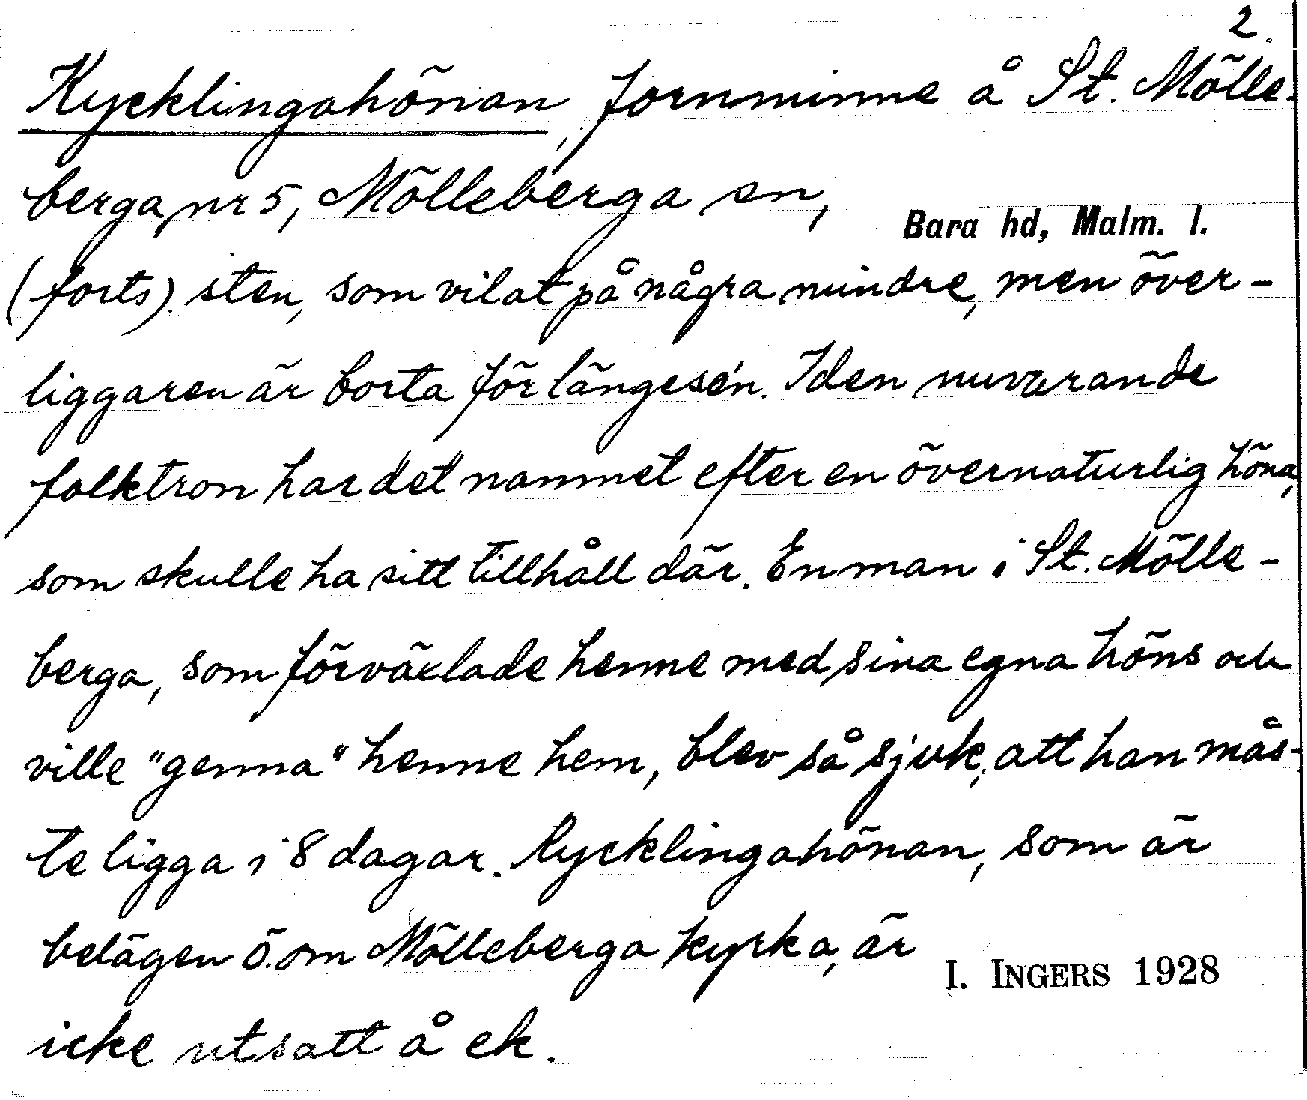 2.
Kycklingahönan, fornminne å St. Mölle-
berga nr 5, Mölleberga sn,
Bara hd, Malm. l.
(forts). sten, som vilat på några mindre, men över-
liggaren är borta för längesen. I den nuvarande
folktron har det namnet efter en övernaturlig höna,
som skulle ha sitt tillhåll där. En man i St. Mölle-
berga, som förväxlade henne med sina egna höns och
ville "genna" henne hem, blev så sjuk, att han mås-
te ligga i 8 dagar. Kycklingahönan, som är
belägen ö. om Mölleberga kyrka, är
I. INGERS 1928
icke utsatt å ek.